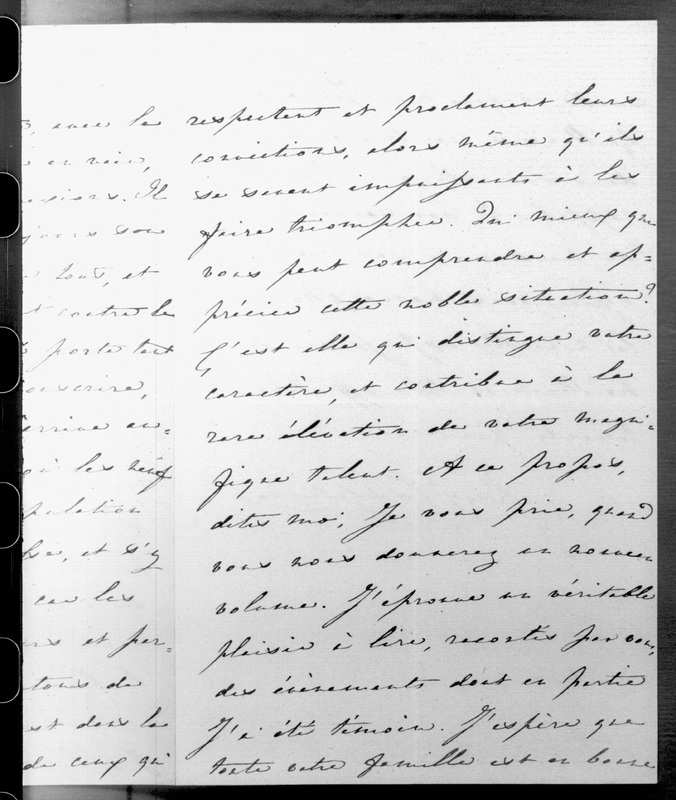 , avec le
en vain,
. Il
jours son
tout, et
contre le
porte tout
inscrire,
arrive au-
où les neuf
pulation
, et s'y
car les
et per-
tous de
est dans la
de ceux qui
respectent et proclament leurs
convictions, alors même qu'ils
se savent impuissants à les
faire triompher. Qui mieux que
vous peut comprendre et ap-
précier cette noble situation?
C'est elle qui distingue votre
caractère, et contribue à la
rare élévation de votre magni-
fique talent. A ce propos,
dites moi, Je vous prie, quand
vous nous donnerez un nouveau
volume. J'éprouve un véritable
plaisir à lire, racontés par vous,
des évènements dont en partie
J'ai été témoin. J'espère que
toute votre famille est en bonne